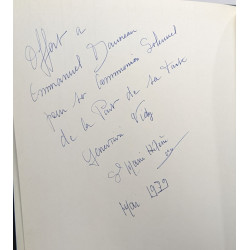 Offert a
Emmanuel
pour sa Communion Solennel
de la Part de sa Tante
Sr Marie Hélène
Mai 1979